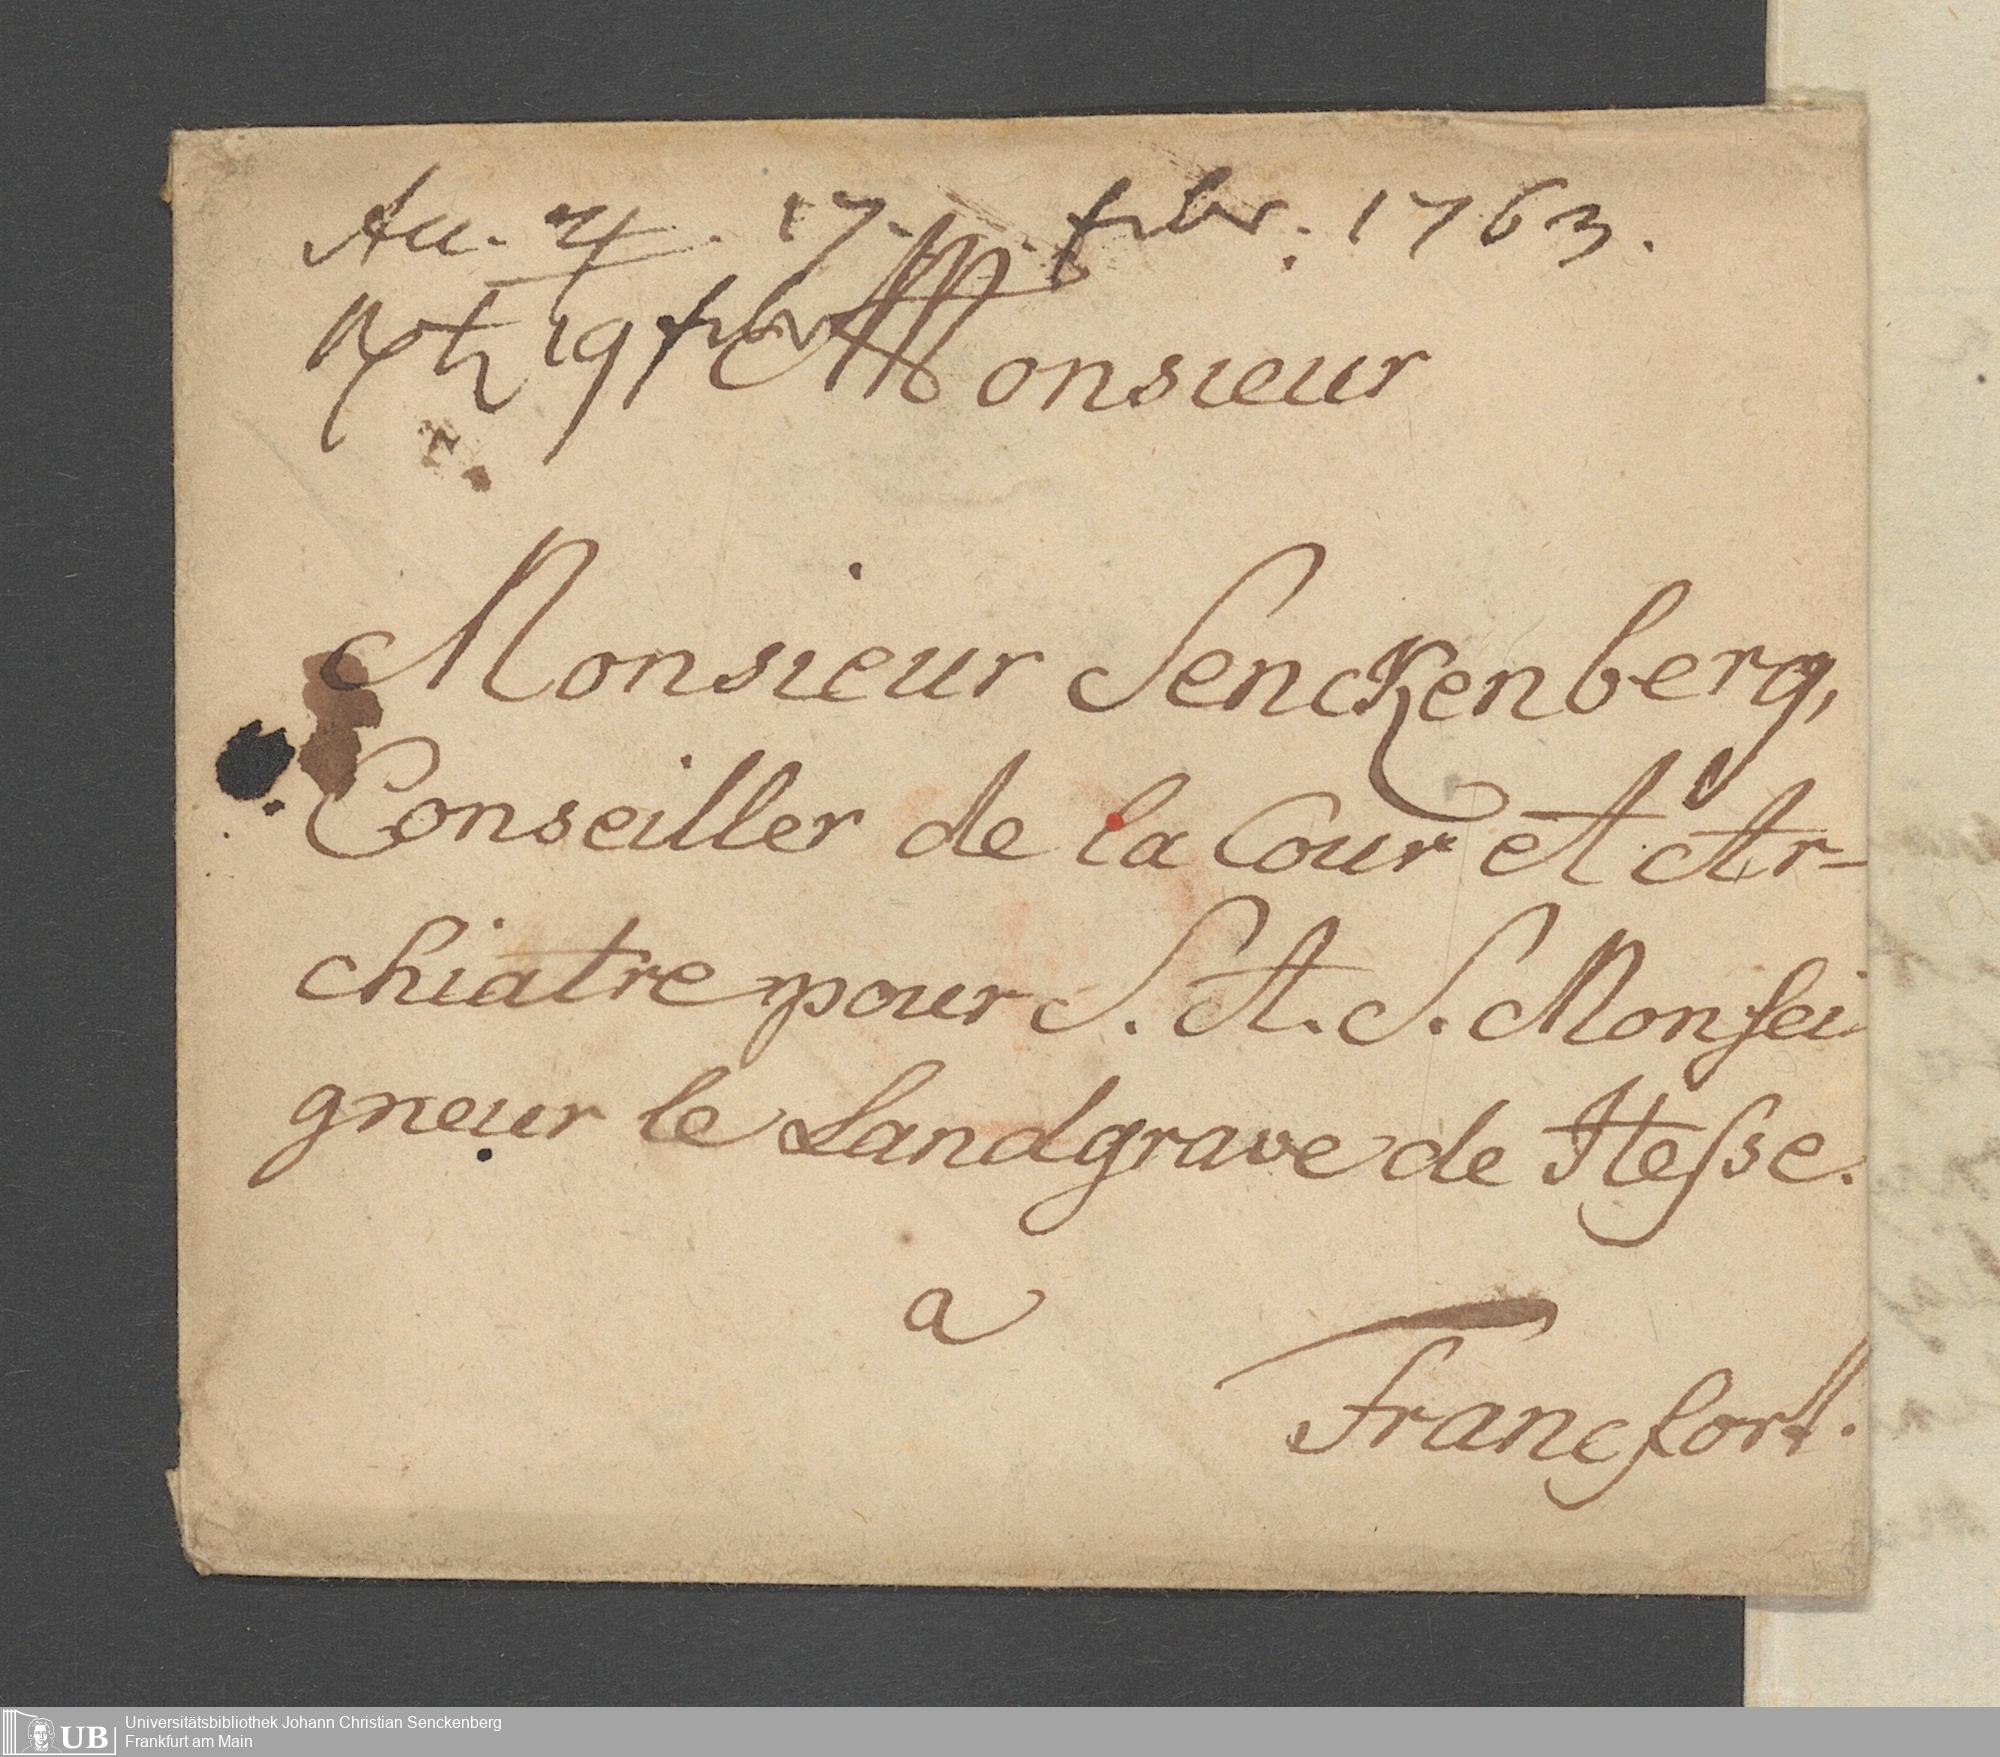 Acc. ♃. 17. febr. 1763.
19 febr
Monsieur
Monsieur Senckenberg,
Conseiller de la Cour et Ar-
chiatre pour S. A. S. Monsei
gneur le Landgrave de Hesse.
a
Francfort.
UB Universitätsbibliothek Johann Christian Senckenberg
Frankfurt am Main